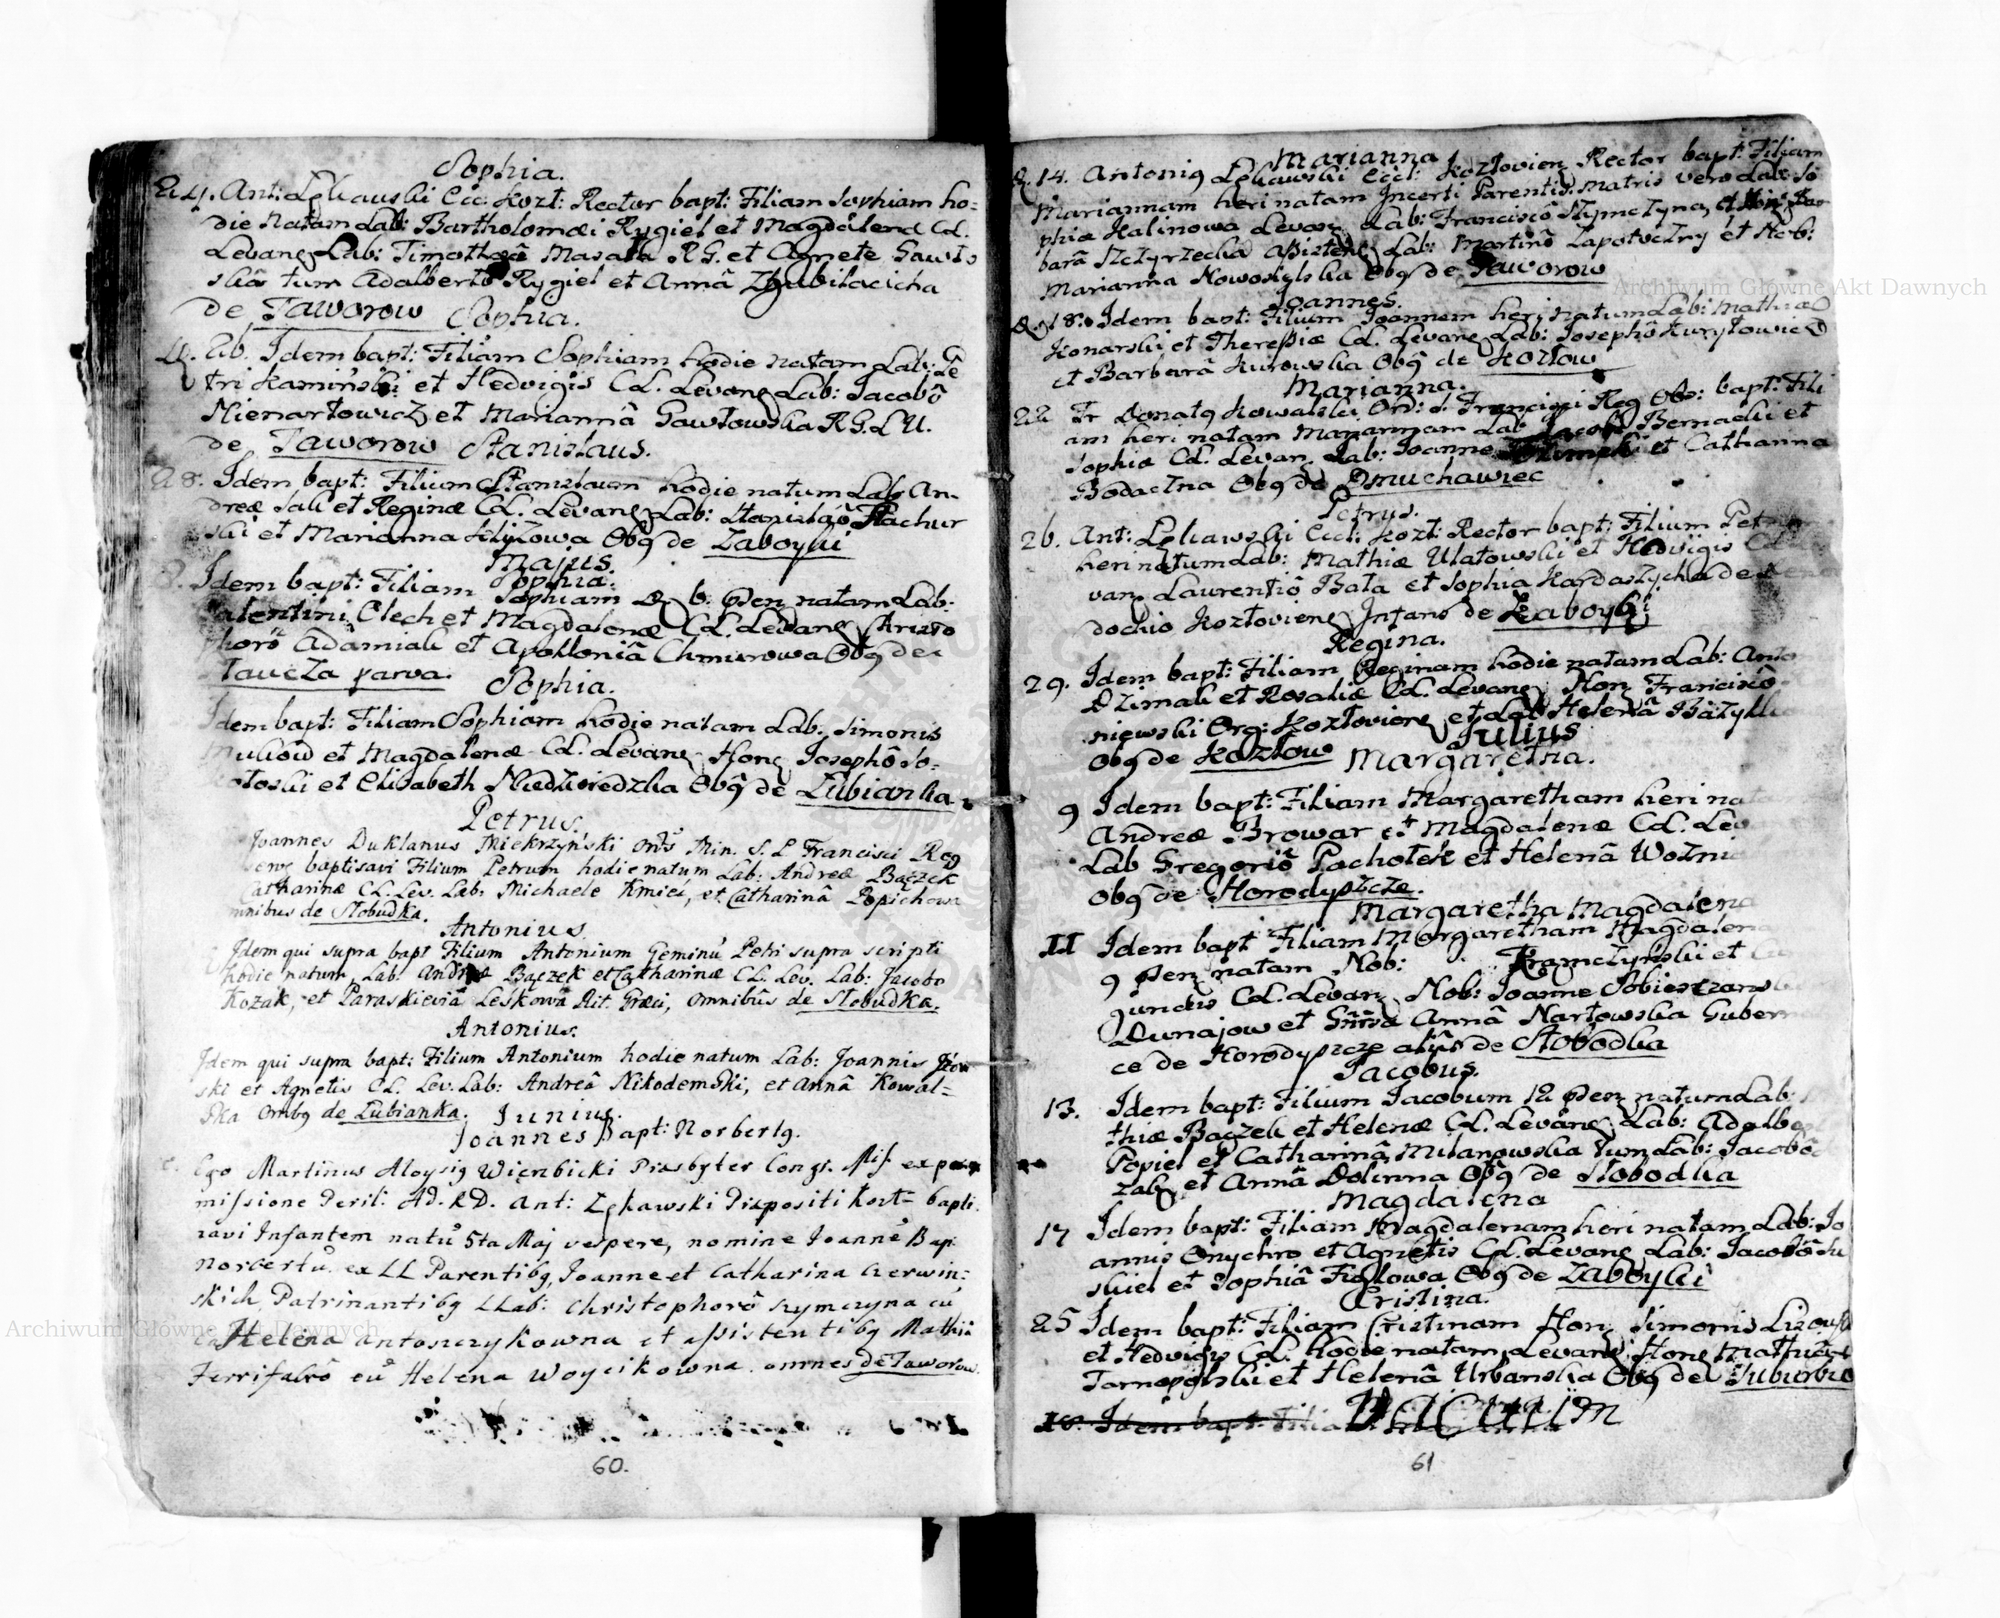 Sophia.
24. Ant: Lękawski Ecc: Kozł: Rector bapt: Filiam Sophiam ho=
die natam Lab: Bartholomæi Rygiel et Magdalenæ CL.
Levang Lab: Timotheô Masala R G. et Agnete Gawło
skâ tum Adalbertô Rygiel et Annâ Zgubilacicha
de Jaworow
Sophia.
Ab. Idem bapt: Filiam Sophiam hodie natam Lab: Pe
tri Kamiński et Hedvigis CL. Levang Lab: Jacobô
Niemartowicz et Mariannâ Gawłowska R G L U.
de Jaworow
Stanislaus.
28. Idem bapt: Filium Stanislaum hodie natum Lab An-
dreæ Sak et Reginæ CL. Levang Lab: Stanislaô Stachur
ski et Marianna Hyżowa Obg de Zaboyki
Majus.
Sophia.
8. Idem bapt: Filiam Sophiam natam Lab:
Valentini Clech et Magdalenæ CL. Levang Christo
phorô Adamiak et Apolloniâ Chmurowa Obg de
Staucza parva.
Sophia.
Idem bapt: Filiam Sophiam hodie natam Lab: Simonis
et Magdalenæ CL. Levang Hong Josephô So=
et Elisabeth Niedzwiedzka Obg de Lubianka
Petrus.
Joannes Duklanus Miekrzyński Ords Min. S. P. Francisci Reg
baptisavi Filium Petrum hodie natum Lab: Andreæ Bączek
Catharinæ CL. Lev. Lab: Michaele Kmieć, et Catharinâ Popichowa
omnibus de Słobudka.
Antonius
Idem qui supra bapt Filium Antonium Geminû Petri supra scripti
hodie natum, Lab. Andreæ Bączek et Catharinæ CL. Lev. Lab: Jacobo
Kozak, et Paraskieviâ Leśkowa Rit. Græci, omnibûs de Słobudka.
Antonius.
Idem qui supra bapt: Filium Antonium hodie natum Lab: Joannis
ski et Agnetis CL. Lev. Lab: Andreâ Nikodemski, et Annâ Kowal=
ska ombg de Lubianka.
Junius.
Joannes Bapt: Norbertg.
Ego Martinus Aloysig Wierzbicki Præsbyter Congr. Miss. ex per
missione Peril: Ad. R D. Ant: Lękawski Præpositi Kozł= bapti
zavi Infantem natû 5ta Maj vespere, nomine Joannê Bap:
Norbertû. ex LL Parentibg, Joanne et Catharina Czerwin=
skich, Patrinantibg LLab: Christophorô Szymczyna cû
Helena Antoszczykowna et assistentibg Mathiâ
Ferrifabrô cû Helena Woycikowna. omnes de Jaworow.
60.
Marianna
14. Antonig Lękawski Eccl: Kozłovieng Rector bapt: Filiam
Mariannam heri natam Incerti Parentis: Matris vero Lab: So
phiæ Kalinowa Levang Lab: Franciscô Szymczyna, et Hon: Bar
barâ Szczyrzecka Assisteng Lab: Martinô Zapotoczny et Nob:
Marianna Nowosielska Obg de Jaworow
Joannes.
18. Idem bapt: Filium Joannem heri natum Lab: Mathiæ
Konarski et Theresiæ CL. Levang Lab: Josephô Kuryłowicz
et Barbarâ Kurowska Obg de Kozłow
Marianna.
22 Fr Donatg Kowalski Ord: S. Francisci Reg Obs: bapt: Fili
am heri natam Mariannam Lab Jacobi Bernacki et
Sophiæ CL. Levan. Lab: Joanne et Catharina
Bodaczna Obg de Dmuchawiec
Petrus.
26. Ant: Lękawski Eccl: Kozł: Rector bapt: Filium Petrum
heri natum Lab: Mathiæ Ulatowski et Hedvigis
vang Laurentiô Bata et Sophia Kardaszycha de
dochio Kozłovieng Infans de Zaboyki
Regina.
29. Idem bapt: Filiam Reginam hodie natam Lab: Anto
Dzimak et Rosaliæ CL. Levang Hon Franciscô
niewski Org: Kozłovieng et Lab Helenâ Bazylk
Obg de Kozłow
Julius
Margaretha.
9 Idem bapt: Filiam Margaretham heri nat
Andreæ Browar et Magdalenæ CL. Lev
Lab Gregoriô Pachołek et Helenâ Wozni
Obg de Horodyszcze.
Margaretha Magdalena
11 Idem bapt Filiam Margaretham Magdalena
9 natam Nob: Kramczyński et Cu
gundis CL. Levang Nob: Joanne Sobieszczans
Dunajow et Annâ Nartowska Gubern
ce de Horodyszcze alijs de Słobodka
Jacobus.
13. Idem bapt: Filium Jacobum 12 natum Lab:
thiæ Bączek et Helenæ CL. Levang Lab: Adalbe
Popiel et Catharinâ Milanowska tum Lab: Jacobô
et Annâ Dolinna Obg de Słobodka
Magdalena
17 Idem bapt: Filiam Magdalenam heri natam Lab: Jo
annis Onychro et Agnetis CL. Levang Lab: Jacobô Su
skiel et Sophiâ Figlowa Obg de Zaboyki
Cristina.
25 Idem bapt: Filiam Cristinam Hong Simonis
et Hedvigis CL. hodie natam, Levang Hong Mathæô
Tarnopolski et Helenâ Urbanska Obg de Suburbio
18. Idem bapt: Filia
Vacuum
61
Archiwum Główne Akt Dawnych
Archiwum Główne Akt Dawnych